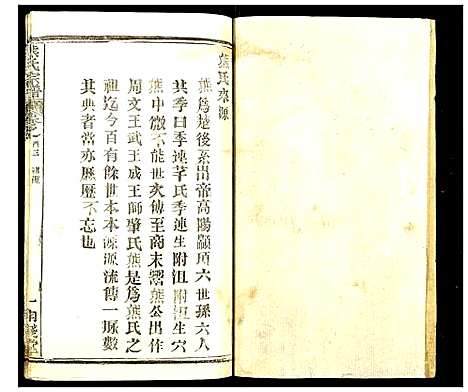 熊氏來源
熊為楚後系出帝高陽顓頊六世孫六人
其季曰季連芈氏季連生附沮附沮生穴
熊中微不能世次傳至商末鬻熊公出作
周文王武王成王師肇氏熊是為熊氏之
祖迄今百有餘世本本源源流傳一脈數
其典者當亦歷歷不忘也
熊氏宗譜
卷之
首三